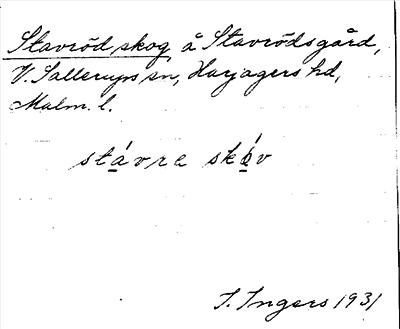 Stavröd skog å Stavrödsgård,
V. Sallerups sn, Harjagers hd,
Malm. l.
stávre skóv
I. Ingers 1931